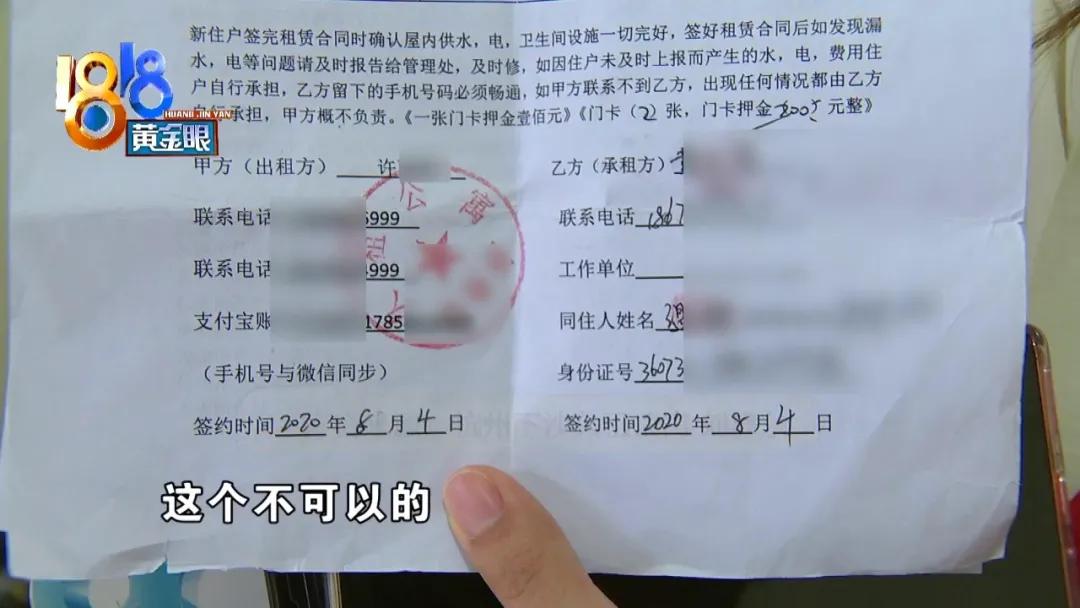 新住户签完租赁合同时确认屋内供水，电，卫生间设施一切完好，签好合同后如发现漏
水，电等问题请及时报告给管理处，及时修，如因住户未及时上报而产生的水，电，费用住
户自行承担，乙方留下的手机号码必须畅通，如甲方联系不到乙方，出现任何情况都由乙方
自行承担，甲方概不负责。《一张门卡押金壹佰元》《门卡（2）张，门卡押金 200 元整》
1818
HUANG JIN YAN
黄金眼
甲方（出租方） 许
乙方（承租方）
公寓
租
联系电话 6999
联系电话 1867
联系电话 4999
工作单位
支付宝账 1785
同住人姓名
（手机号与微信同步）
身份证号 36073
签约时间 2020 年 8 月 4 日
签约时间 2020 年 8 月 4 日
这个不可以的